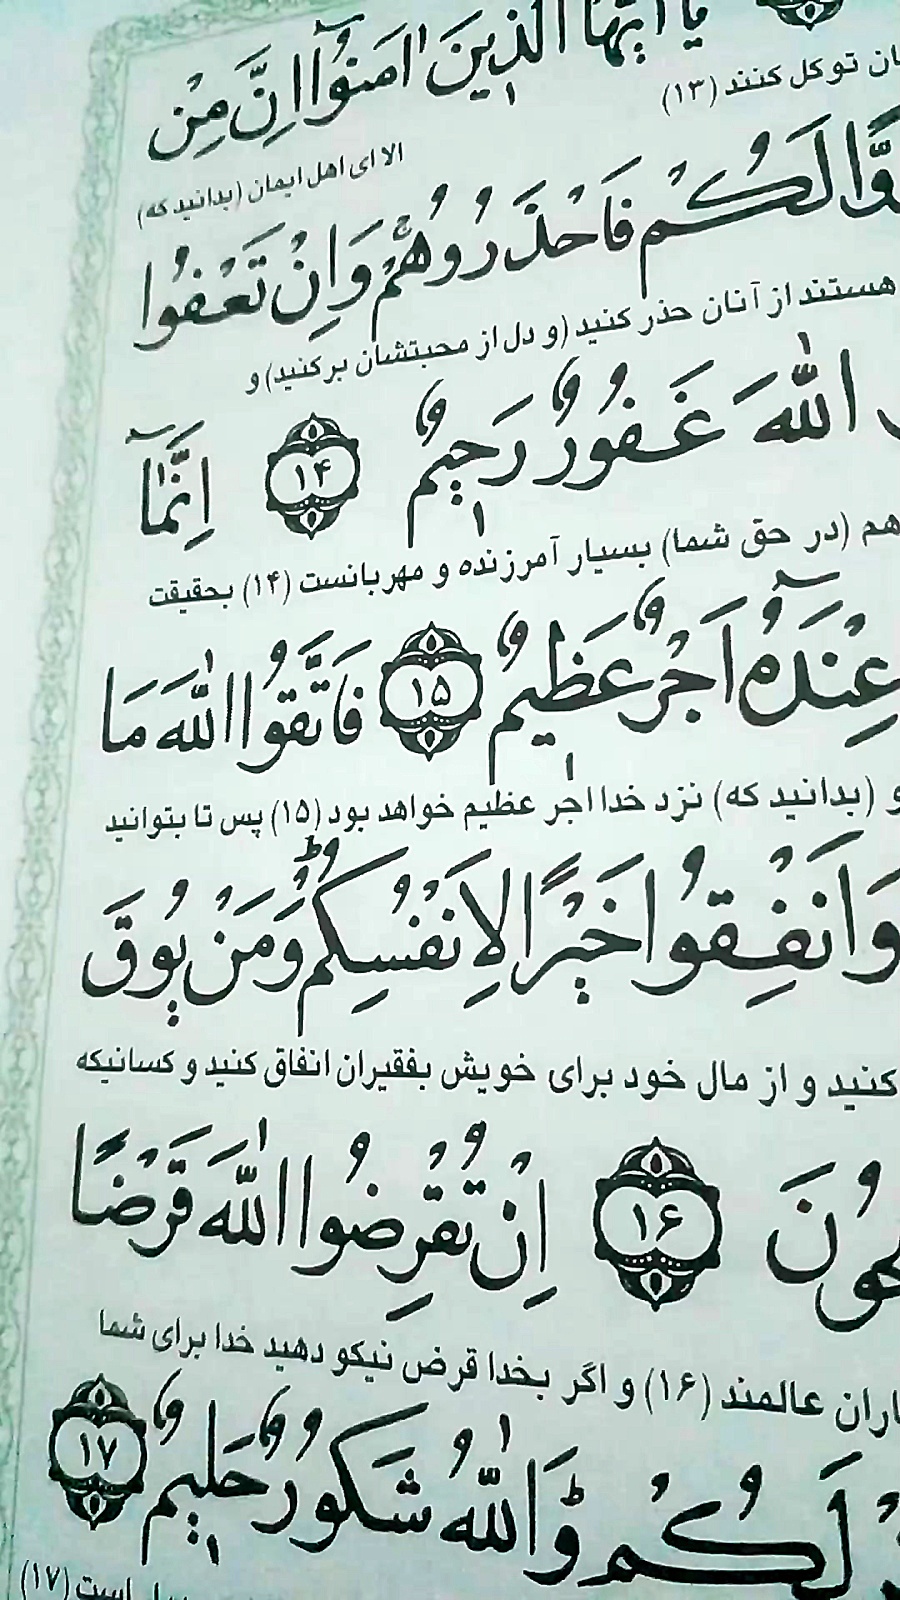 يَا أَيُّهَا الَّذِينَ اٰمَنُوٓا اِنَّ مِنْ
توکل کنند (۱۳)
الا ای اهل ایمان (بدانید که)
لَكُمْ فَاحْذَرُوهُمْ وَاِنْ تَعْفُوا
هستند از آنان حذر کنید (و دل از محبتشان برکنید) و
اللّٰهَ غَفُورٌ رَحِيمٌ ۱۴ اِنَّمَآ
هم (در حق شما) بسیار آمرزنده و مهربانست (۱۴) بحقیقت
عِنْدَهُٓ اَجْرٌ عَظِيمٌ ۱۵ فَاتَّقُوا اللّٰهَ مَا
و (بدانید که) نزد خدا اجر عظیم خواهد بود (۱۵) پس تا بتوانید
وَاَنْفِقُوا خَيْرًا لِاَنْفُسِكُمْ ط وَمَنْ يُوقَ
کنید و از مال خود برای خویش بفقیران انفاق کنید و کسانیکه
۱۶ اِنْ تُقْرِضُوا اللّٰهَ قَرْضًا
عالمند (۱۶) و اگر بخدا قرض نیکو دهید خدا برای شما
لَكُمْ ط وَاللّٰهُ شَكُورٌ حَلِيمٌ ۱۷
است (۱۷)